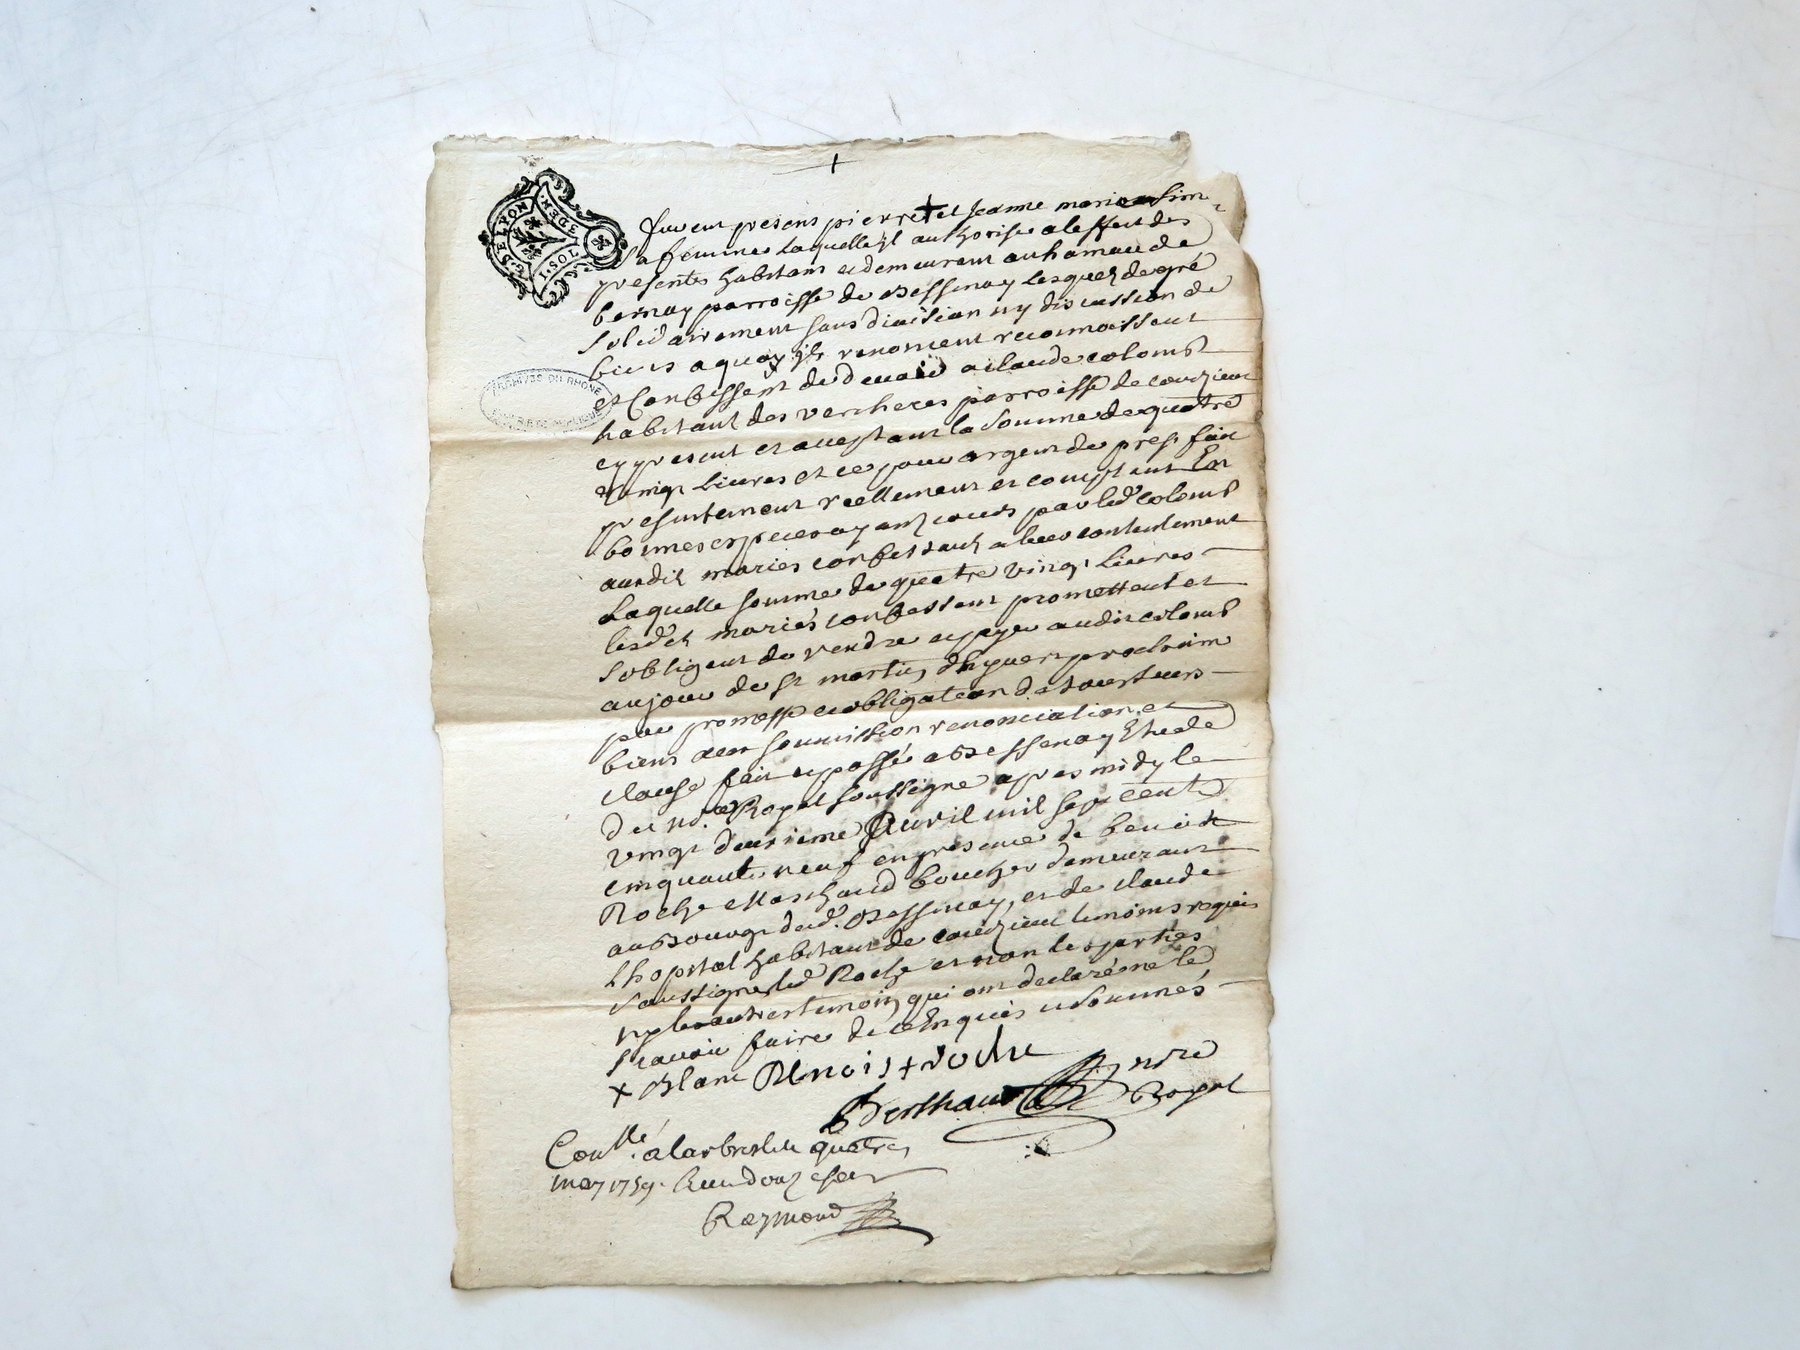 G. DE LYON
1. SOL
6. DEN.
ARCHIVES DU RHONE
furent presens pierre + et Jeanne marie Sim
sa femme laquelle il authorise a leffect des
presentes habitans et demeurant au hameau de
bernay parroisse de Bessenay lesquels de gré
solidairement sans division ny discussion de
biens a quoy ils renoncent reconnoissent
et Confessent de devoir a claude colomb
habitant des varcheres parroisse de courzieux
cy present et acceptant la somme de quatre
vingt livres et ce pour argent de prest fait
presentement reellement et comptant En
bonnes especes ayant cours par led. colomb
auxdits mariés confessant a leur contentement
Laquelle somme de quatre vingt livres
lesdits mariés confessent promettent et
sobligent de rendre et payer audit colomb
au jour de St martin dhyver prochain
par promesse et obligation de tous leurs
biens avec soumission renonciation et
clause fait et passé a Bessenay Etude
du no.re Royal soussigné apres midy le
vingt deuxieme Avril mil sept cent
cinquante neuf en presence de benoist
Roche Marchand boucher demeurant
au Bourg dud. Bessenay, et de claude
Lhopital habitant de courzieu temoins requis
soussigné led. Roche et non les parties
ny lautre temoin qui ont declaré ne le
scavoir faire de ce Enquis et sommés
+ Blanc Benoist roche
Berthaud no.re
Royal
Con.llé a larbresle le quatre
may 1759. Reçu douze sols
Raymond